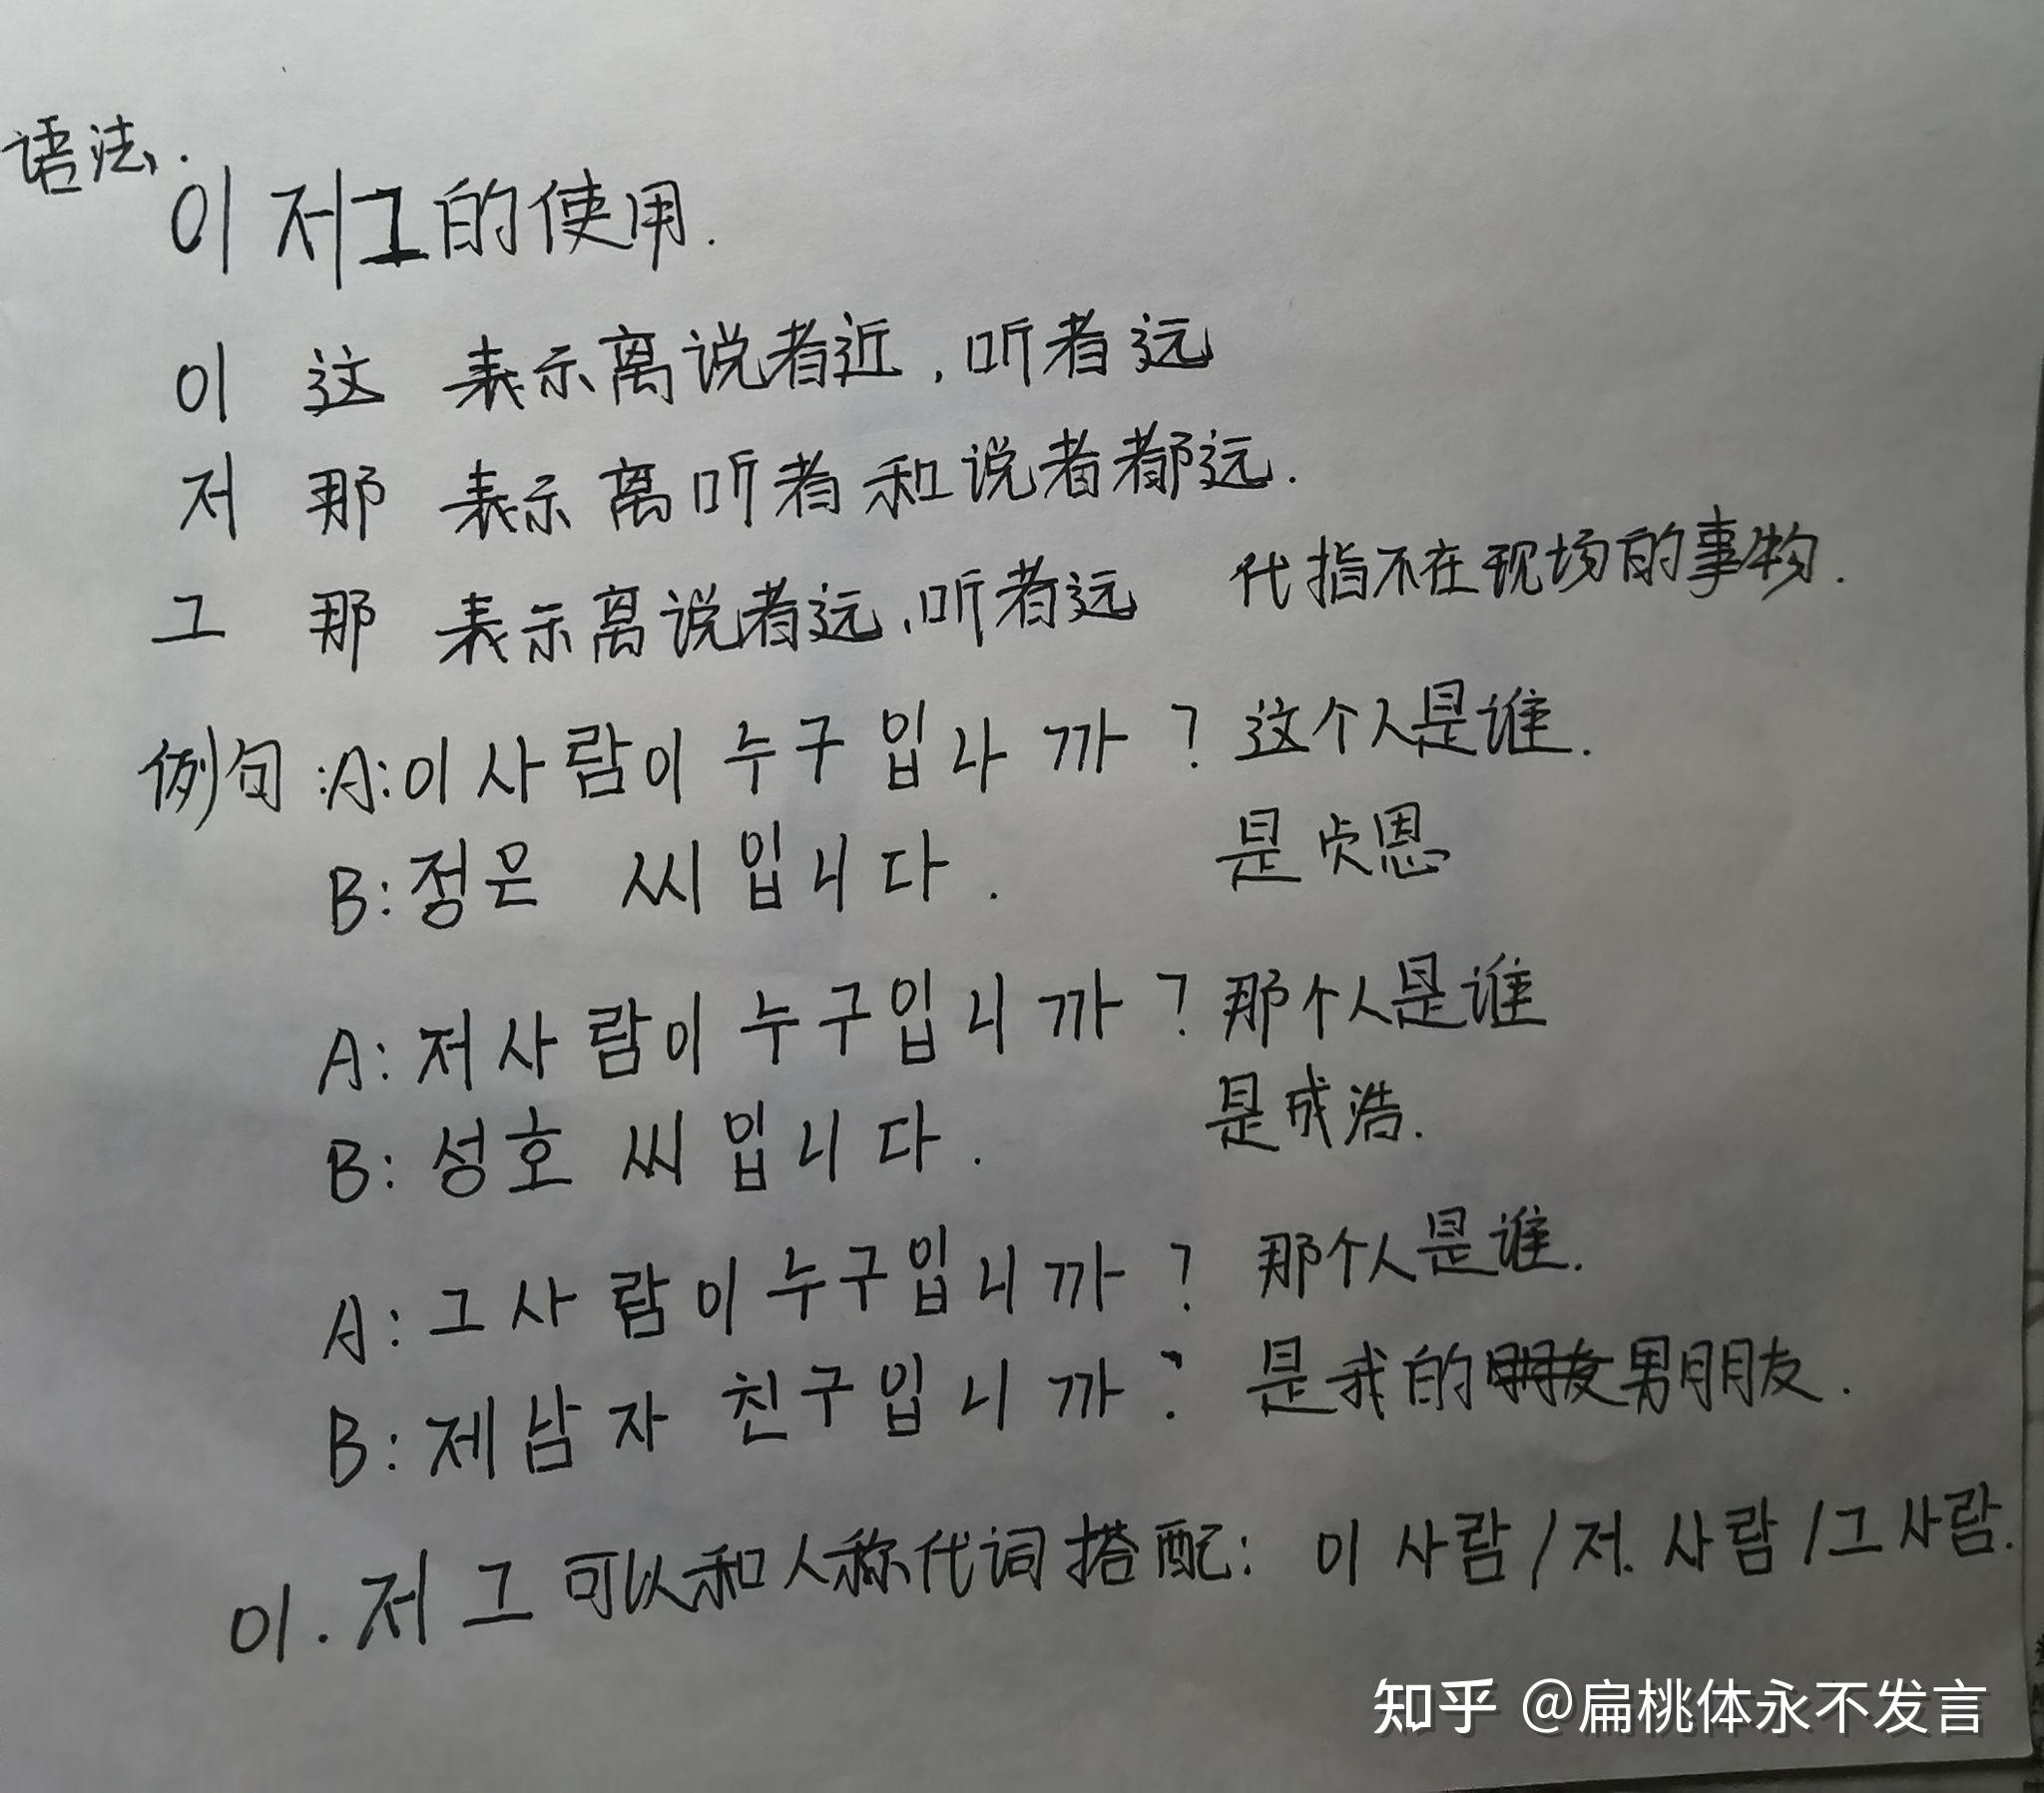 语法.
이 저그的使用.
이 这 表示离说者近,听者远
저 那 表示离听者和说者都远.
그 那 表示离说者远,听者远 代指不在现场的事物.
例句:A:이사람이누구입나까? 这个人是谁.
B:정은 씨입니다. 是贞恩
A:저사람이누구입니까? 那个人是谁
B:성호 씨입니다. 是成浩.
A:그사람이누구입니까? 那个人是谁.
B:제남자 친구입니까? 是我的朋友男朋友.
이.저그可以和人称代词搭配: 이 사람/저.사람/그사람.
知乎 @扁桃体永不发言